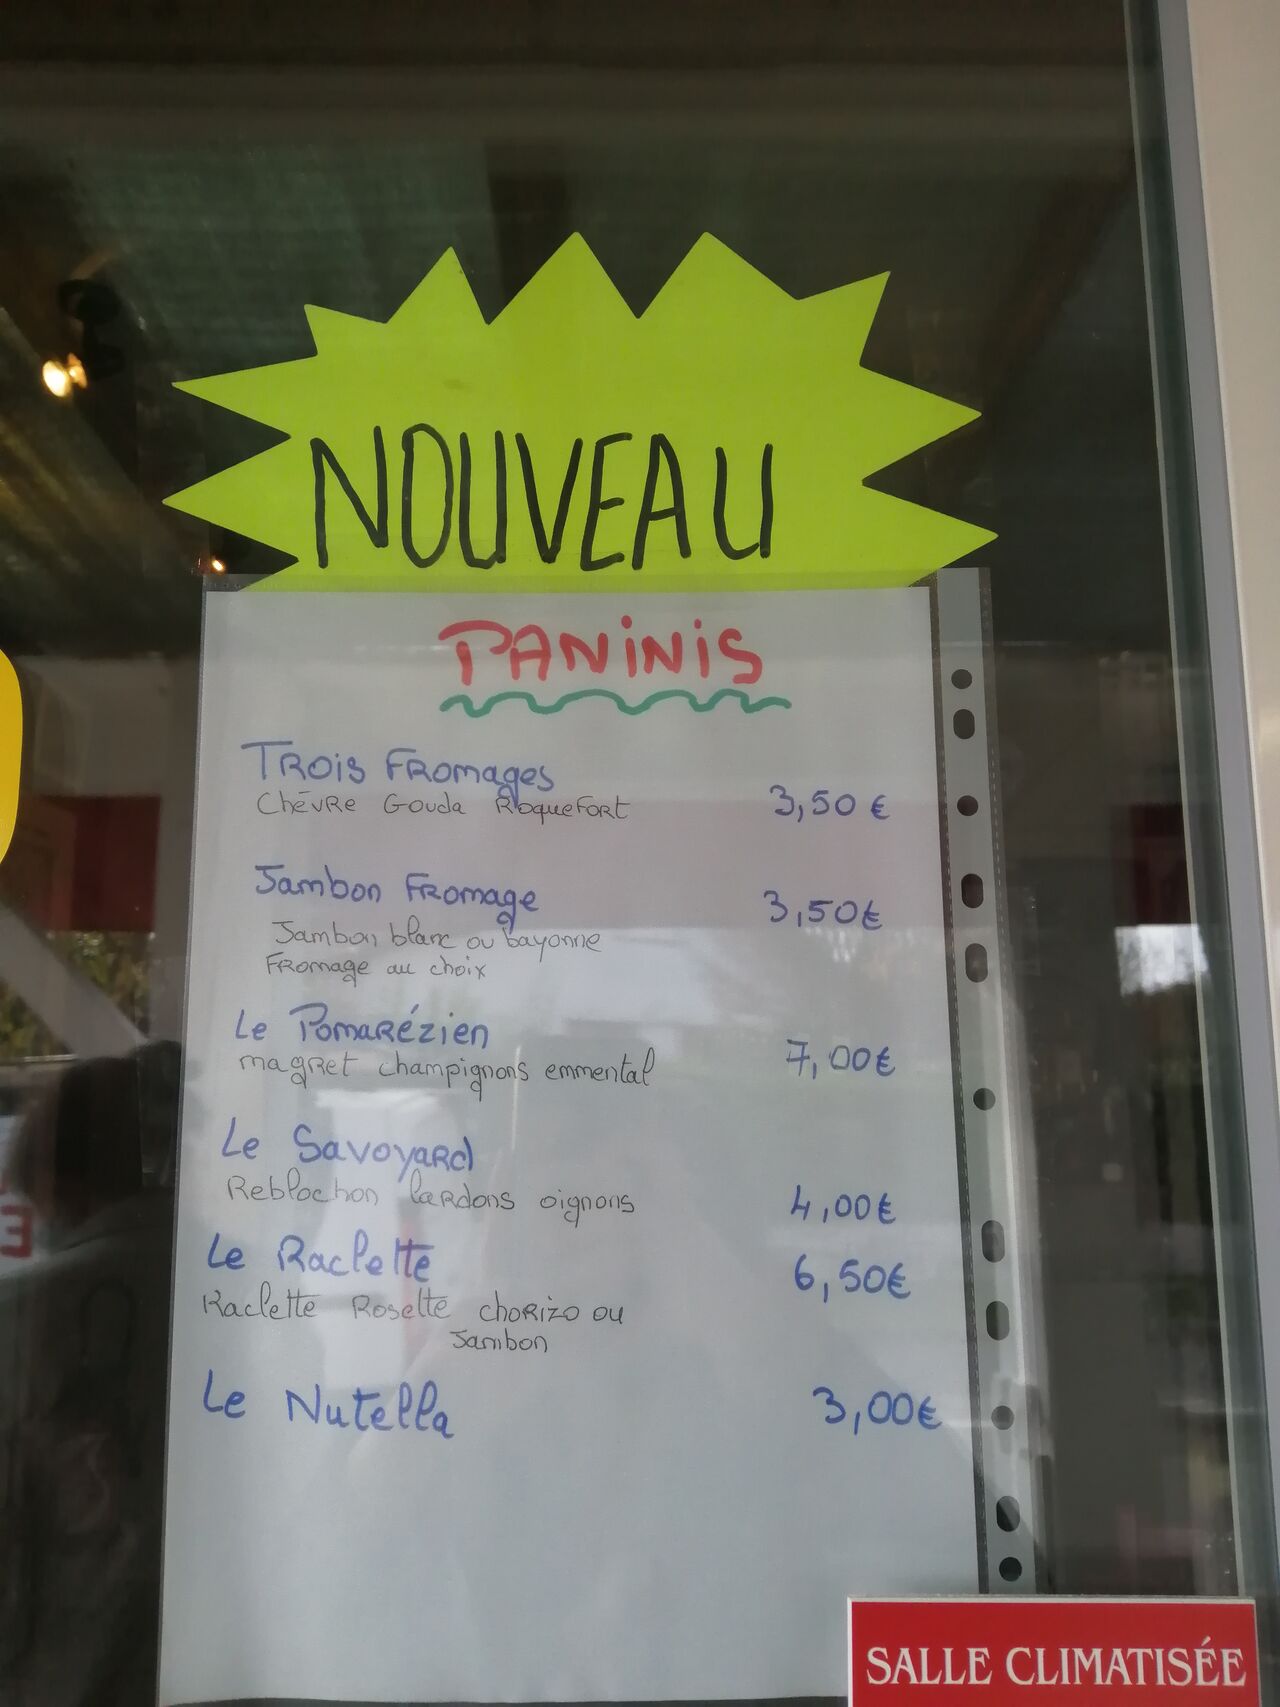 NOUVEAU
PANINIS
TROIS FROMAGES
CHÉVRE GOUDA ROQUEFORT 3,50 €
JAMBON FROMAGE 3,50€
Jambon blanc ou bayonne
FROMAGE au choix
Le POMARÉZIEN
magret champignons emmental 7,00€
Le SAVOYARD
Reblochon lardons oignons 4,00€
Le Raclette 6,50€
Raclette Rosette chorizo ou
Jambon
Le Nutella 3,00€
SALLE CLIMATISÉE